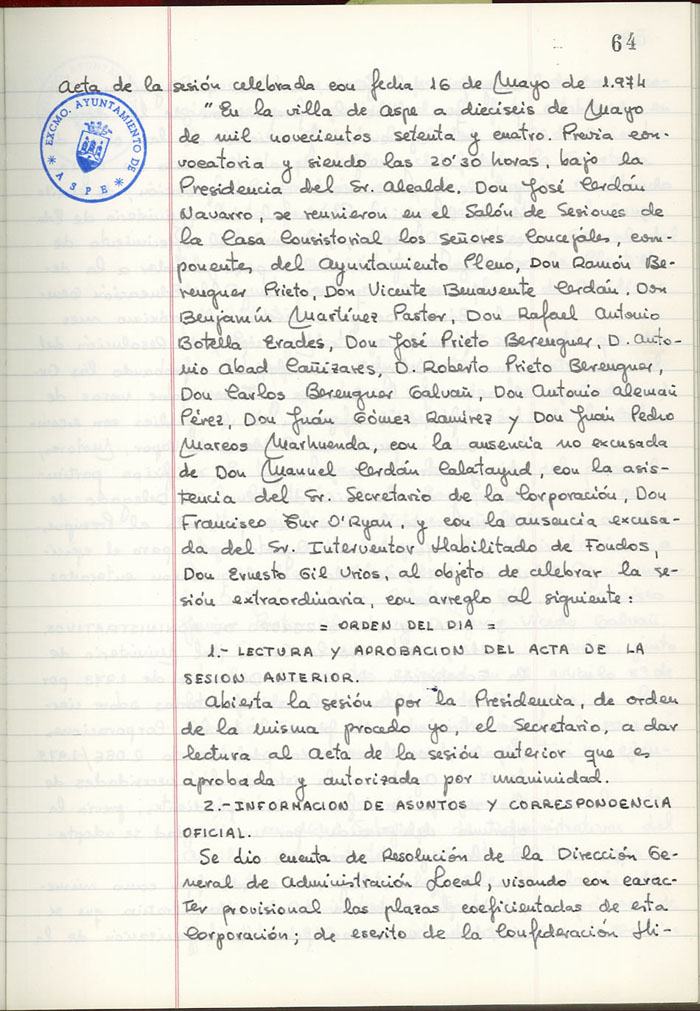 64
Acta de la sesión celebrada con fecha 16 de Mayo de 1.974
EXCMO. AYUNTAMIENTO DE
* ASPE *
"En la villa de Aspe a dieciséis de Mayo
de mil novecientos setenta y cuatro. Previa con-
vocatoria y siendo las 20'30 horas, bajo la
Presidencia del Sr. Alcalde, Don José Cerdán
Navarro, se reunieron en el Salón de Sesiones de
la Casa Consistorial los señores Concejáles, com-
ponentes del Ayuntamiento Pleno, Don Ramón Be-
renguer Prieto, Don Vicente Benavente Cerdán. Don
Benjamín Martínez Pastor, Don Rafael Antonio
Botella Erades, Don José Prieto Berenguer, D. Anto-
nio Abad Cañizares, D. Roberto Prieto Berenguer,
Don Carlos Berenguer Galvañ, Don Antonio Alemañ
Pérez, Don Juán Gómez Ramírez y Don Juán Pedro
Marcos Marhuenda, con la ausencia no excusada
de Don Manuel Cerdán Calatayud, con la asis-
tencia del Sr. Secretario de la Corporación, Don
Francisco Tur O'Ryan, y con la ausencia excusa-
da del Sr. Interventor Habilitado de Fondos,
Don Ernesto Gil Urios, al objeto de celebrar la se-
sión extraordinaria, con arreglo al siguiente:
= ORDEN DEL DIA =
1.- LECTURA Y APROBACION DEL ACTA DE LA
SESION ANTERIOR.
Abierta la sesión por la Presidencia, de orden
de la misma procedo yo, el Secretario, a dar
lectura al acta de la sesión anterior que es
aprobada y autorizada por unanimidad.
2.- INFORMACION DE ASUNTOS Y CORRESPONDENCIA
OFICIAL.
Se dio cuenta de Resolución de la Dirección Ge-
neral de Administración Local, visando con carac-
ter provisional las plazas coeficientadas de esta
Corporación; de escrito de la Confederación Hi-